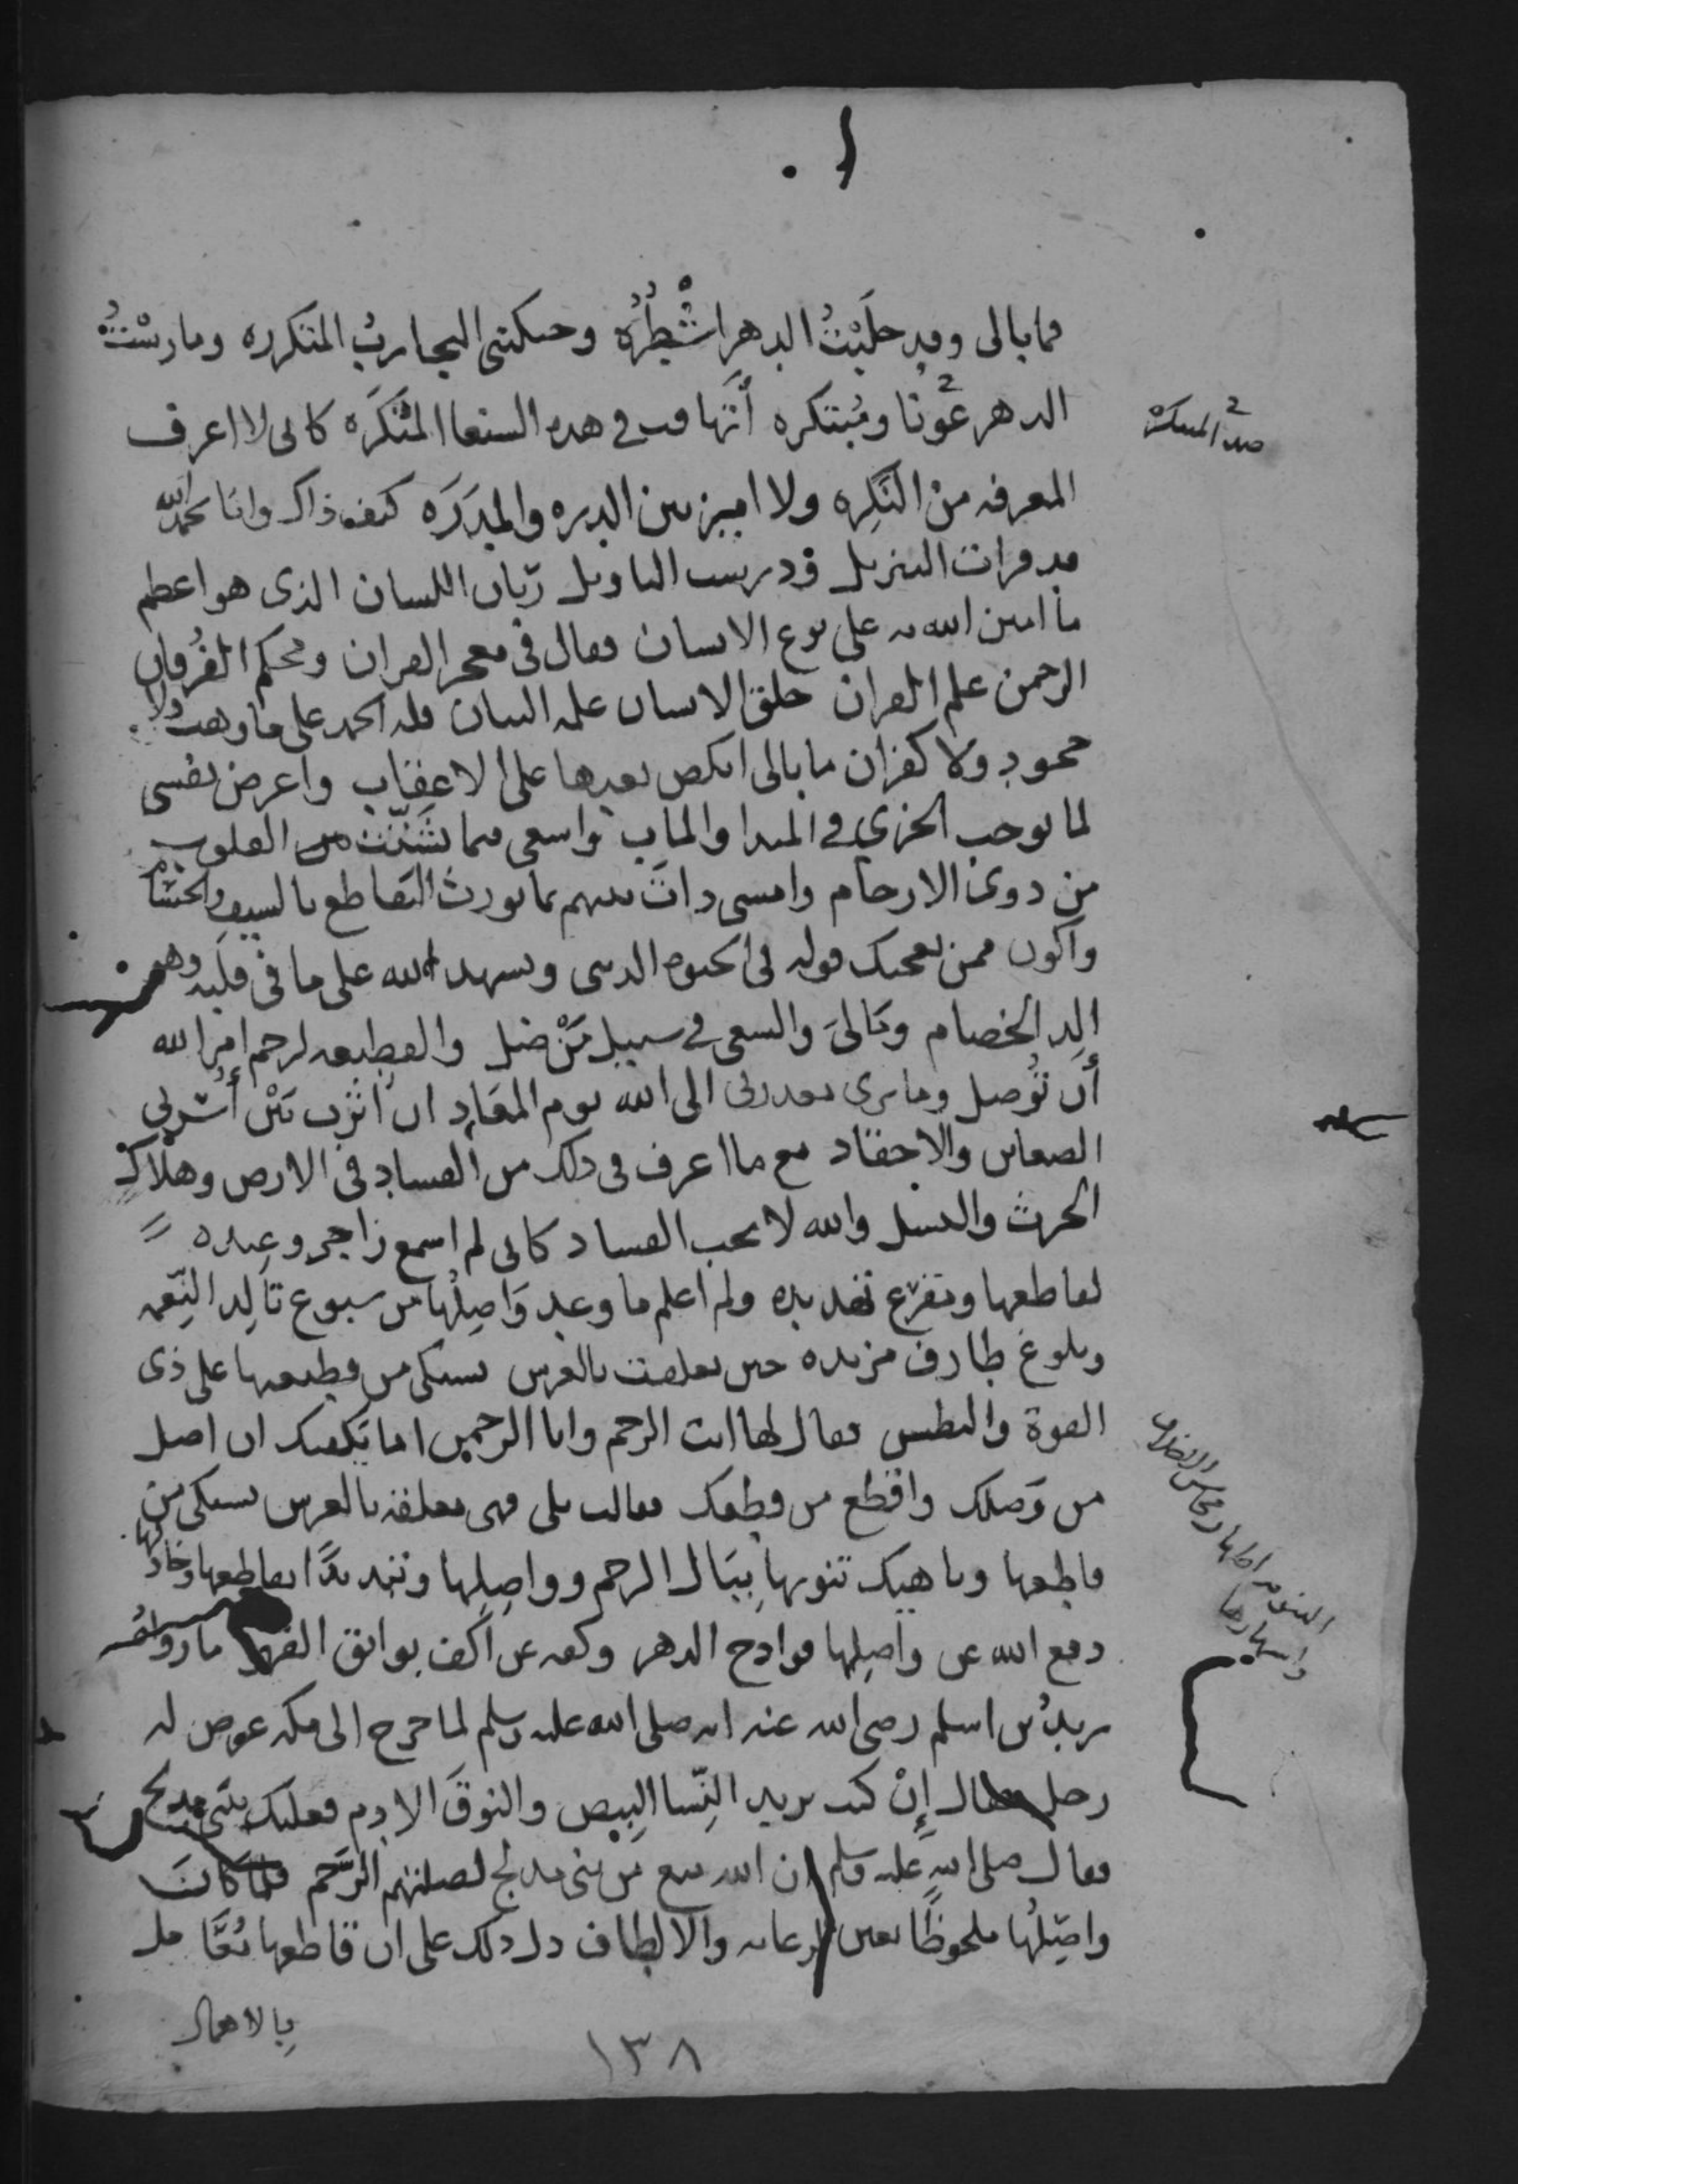 فما بالى وقد حلبت الدهر اشطره وحنكتنى التجارب المتكرره ومارست
الدهر عونا ومبتكره أتهافت فى هذه السنعا المنكره كانى لا اعرف
ضد المبتكره
المعرفه من النكره ولا اميز بين الدره والمدره كيف ذاك وانا بحمد الله
قد قرات التنزيل ودرست التاويل اللسان الذى هو اعظم
ما امتن الله به على نوع الانسان فقال فى معجز القران ومحكم الفرقان
الرحمن علم القران خلق الانسان علمه البيان فله الحمد على ما وهب ولا
جحود ولا كفران ما بالى انكص بعدها على الاعقاب واعرض نفسى
لما يوجب الخزى فى المبدا والماب واسعى فيما يشتت من القلوب
من ذوى الارحام وامسى ذات بينهم بما يورث التقاطع بالسيف
واكون ممن يعجبك قوله فى الحيوه الدنيى ويشهد الله على ما فى قلبه وهو
الد الخصام ومالى والسعى فى سبيل من ضل والقطيعه لرحم امر الله
أن توصل وما ترى معذرتى الى الله يوم المعاد ان اثرت بين أسرتى
الضغاين والاحقاد مع ما اعرف فى ذلك من الفساد فى الارض وهلاك
الحرث والنسل والله لا يحب الفساد كانى لم اسمع زاجر وعيده
لقاطعها وتقريع تهديده ولم اعلم ما وعد واصلها من سبوغ تالد النعمه
وبلوغ طارف مزيده حين تعلقت بالعرش تشتكى من قطيعتها على ذى
القوة والبطش فقال لها انت الرحم وانا الرحمن اما يكفيك ان اصل
من وصلك واقطع من قطعك فقالت بلى فهى معلقه بالعرش تشتكى من
قاطعها وناهيك تنويها ببال الرحم وواصلها وتنديدا بقاطعها
دفع الله عن واصلها فوادح الدهر وكفه عن اكف بوائق القهر ما رواه
زيد بن اسلم رضى الله عنه انه صلى الله عليه وسلم لما خرج الى مكه عرض له
رجل فقال إن كنت تريد النسا البيض والنوق الادم فعليك ببنى مدلج
فقال صلى الله عليه وسلم ان الله منع من بنى مدلج لصلتهم الرحم فلما كانت
واصلها ملحوظا بعين الرعايه والالطاف دل ذلك على ان قاطعها
بالاهمال
١٣٨